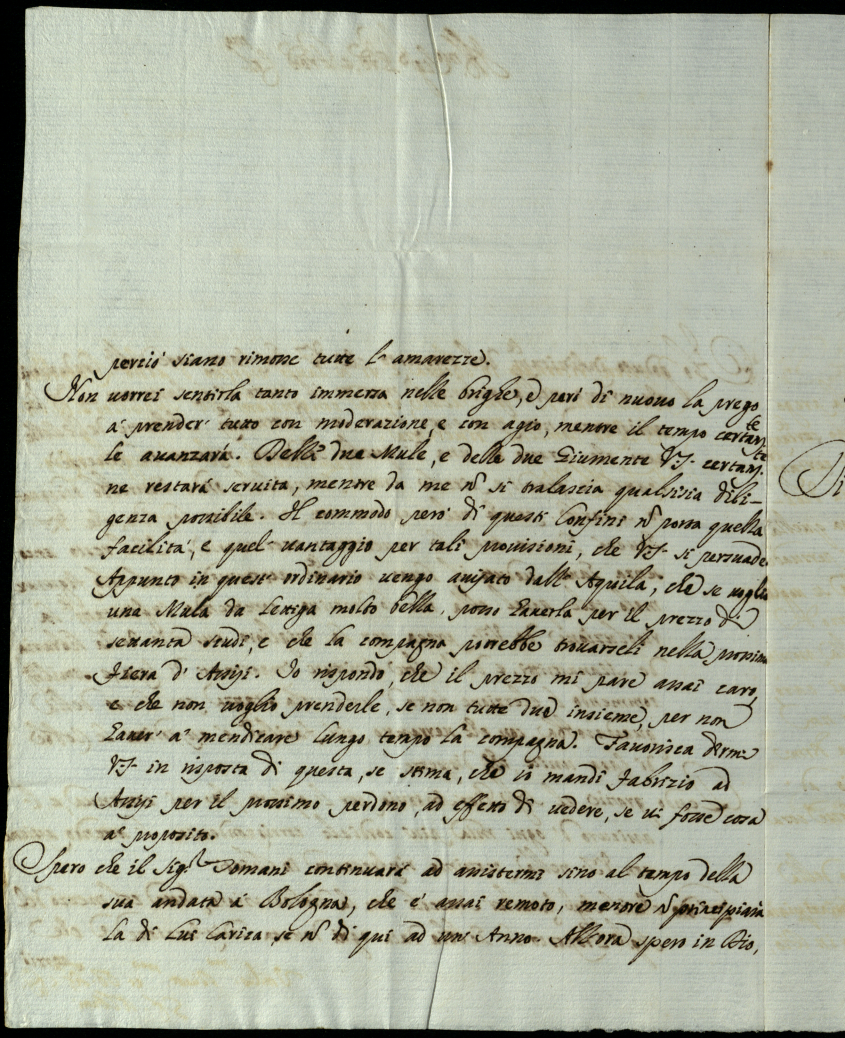 perciò siano rimosse tutte l'amarezze.
Non vorrei sentirla tanto immersa nelle brighe, e però di nuovo la prego
à prender tutto con moderazione, e con agio, mentre il tempo certam.te
le avanzarà. Delle due Mule, e delle due Giumente VS. certam.te
ne restarà servita, mentre da me ñ si tralascia qualsisia dili-
genza possibile. Il commodo però di questi Confini ñ porta quella
facilità, e quel vantaggio per tali provisioni, che VS. si persuade.
Appunto in quest'ordinario vengo avisato dall'Aquila, che se voglio
una Mula da letiga molto bella, posso haverla per il prezzo di
settanta scudi, e che la compagna potrebbe trovarseli nella prossima
fiera d'Assisi. Io rispondo, che il prezzo mi pare assai caro,
e che non voglio prenderle, se non tutte due insieme, per non
haver à mendicare lungo tempo la compagna. Favorisca dirmi
VS. in risposta di questa, se stima, che io mandi Fabrizio ad
Assisi per il prossimo perdono, ad effetto di vedere, se vi fosse cosa
à proposito.
Spero che il Sig.r Domani continuarà ad assistermi sino al tempo della
sua andata à Bologna, che è assai remoto, mentre ñ principiarà
la di Lui Carica se ñ di qui ad un'Anno. Allora spero in Dio,
Di